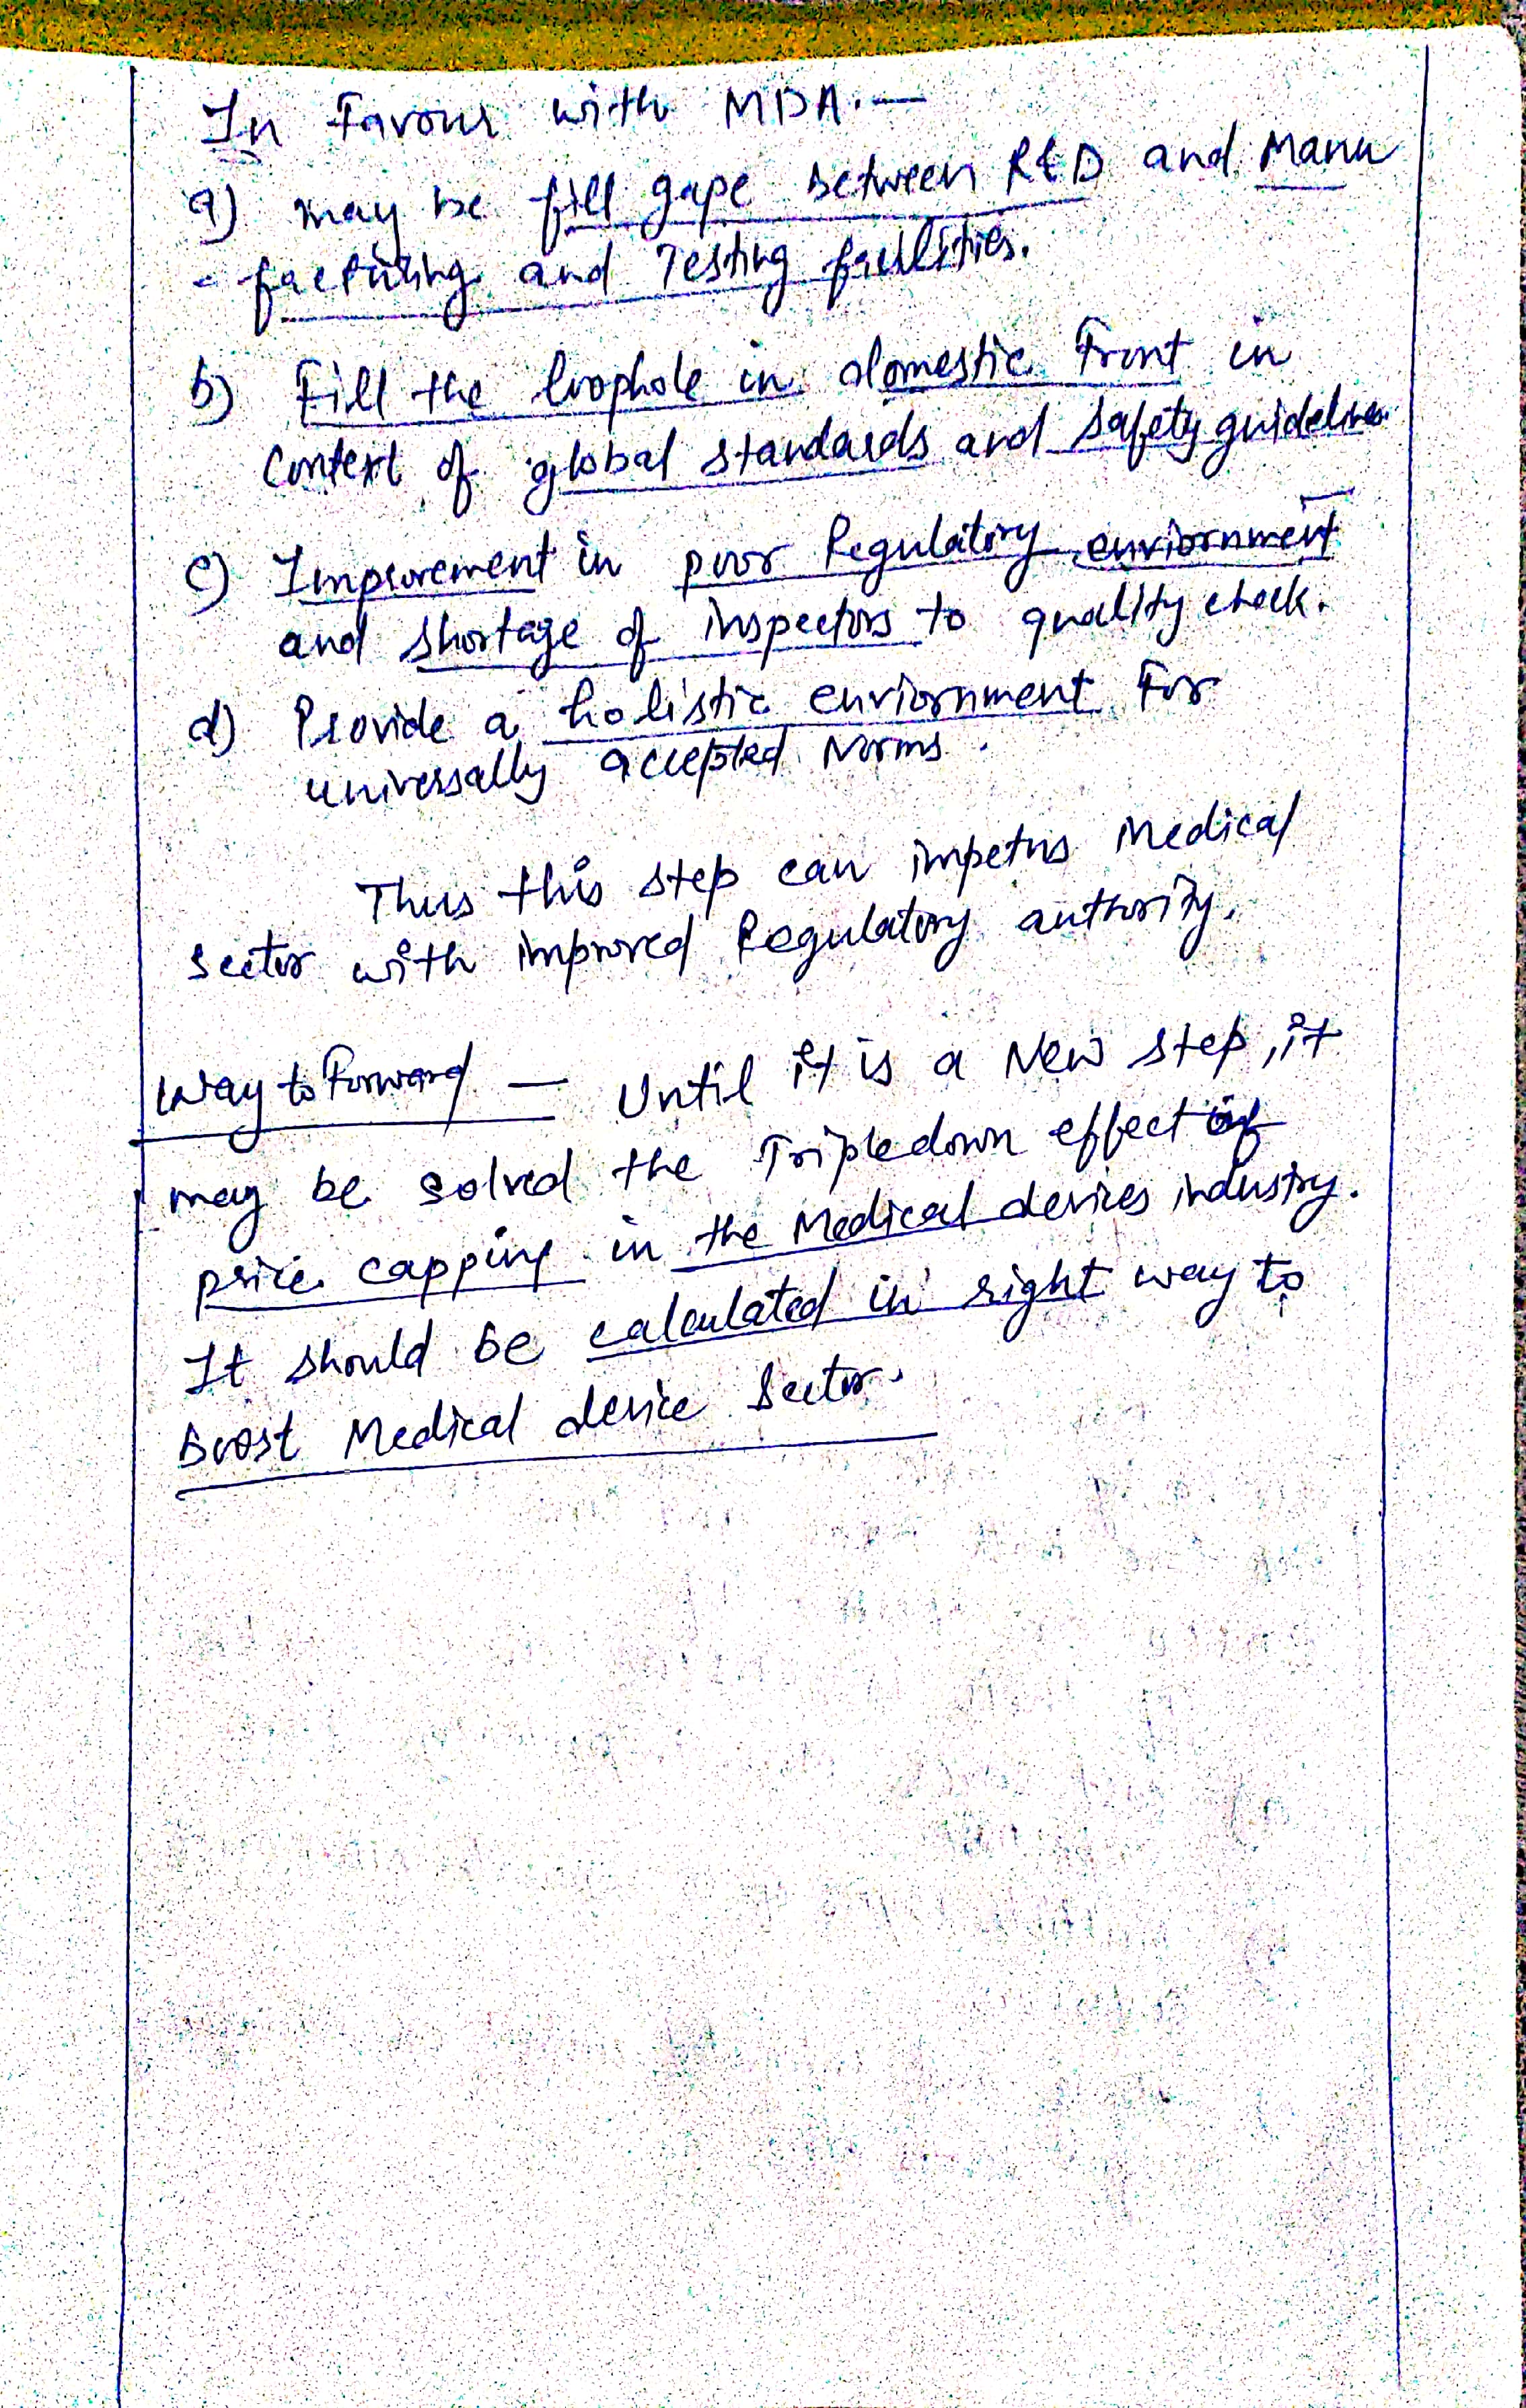 In Favour with MDA:—
a) may be fill gape between R&D and Manu
- facturing and Testing facilities.
b) Fill the loophole in domestic Front in
Context of global standards and safety guidelines
c) Improvement in poor Regulatory enviornment
and shortage of inspectors to quality check.
d) Provide a holistic enviornment For
universally accepted Norms.
Thus this step can impetus Medical
sector with improved Regulatory authority.
Way to Forward — Until it is a New step, it
may be solved the Tripledown effect of
price capping in the Medical devices industry.
It should be calculated in right way to
Boost Medical device Sector.